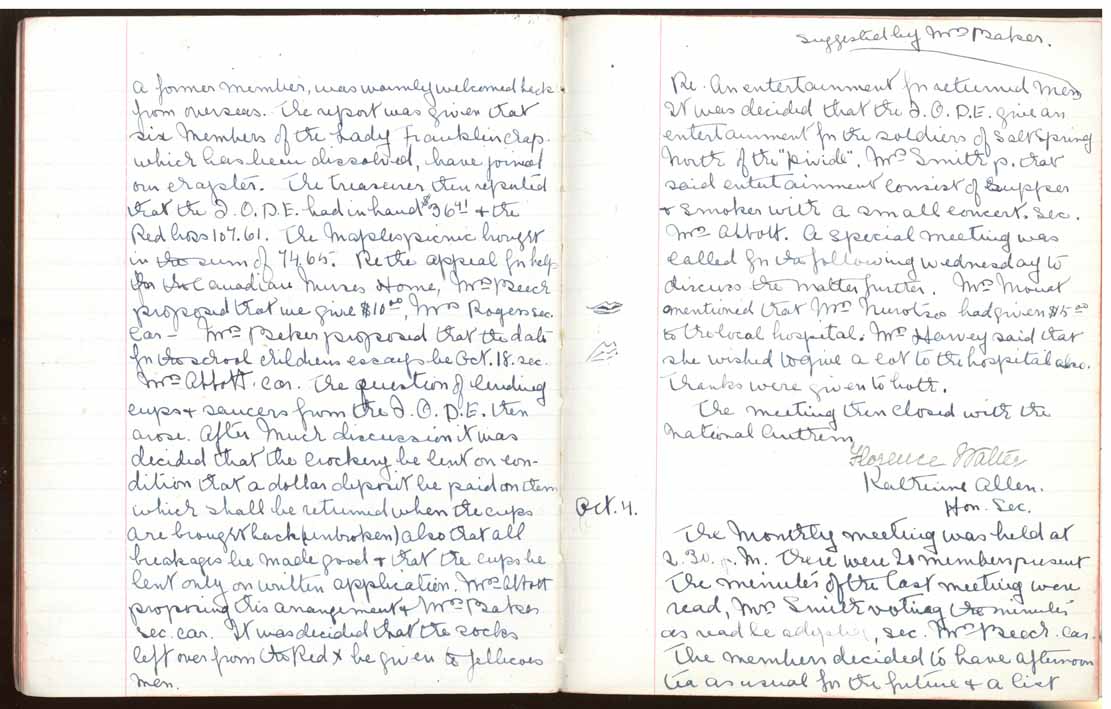 a former member, was warmly welcomed back
from overseas. The report was given that
six Members of the Lady Franklin Chap.
which has been dissolved, have joined
our chapter. The treasurer then reported
that the I.O.D.E. had in hand $36.41 & the
Red Cross 107.61. The Maples picnic brought
in the sum of 74.65. Re the appeal for help
for the Canadian Nurses Home, Mrs Beech
proposed that we give $10.00, Mrs Rogers sec.
Car— Mrs Baker proposed that the date
for the school childrens essays be Oct. 18. sec.
Mrs Abbott. car. The question of lending
cups & saucers from the I.O.D.E. then
arose. After Much discussion it was
decided that the crockery be lent on con-
dition that a dollar deposit be paid on them
which shall be returned when the cups
are brought back (unbroken) also that all
breakages be made good & that the cups be
lent only on written application. Mrs Abbott
proposing this arrangement & Mrs Baker
sec. car. It was decided that the socks
left over from the Red X be given to Jellicoes
men.
Suggested by Mrs Baker.
Re. An entertainment for returned Men
It was decided that the I.O.D.E. give an
entertainment for the soldiers of Salt Spring
North of the "Divide". Mrs Smith p. that
said entertainment consist of Supper
& Smoker with a small concert. Sec.
Mrs Abbott. A special meeting was
called for the following Wednesday to
discuss the matter further. Mrs Mouat
mentioned that Mr had given $15.00
to the local hospital. Mrs Harvey said that
she wished to give a cot to the hospital also.
Thanks were given to both.
The meeting then closed with the
National Anthem
Florence Walter
Katherine Allen.
Hon. Sec.
Oct. 4.
The Monthly meeting was held at
2.30. p. M. There were 20 members present
The minutes of the last meeting were
read, Mrs Smith voting the minutes
as read be adopted, sec. Mrs Beech. Car.
The members decided to have afternoon
tea as usual for the future & a list